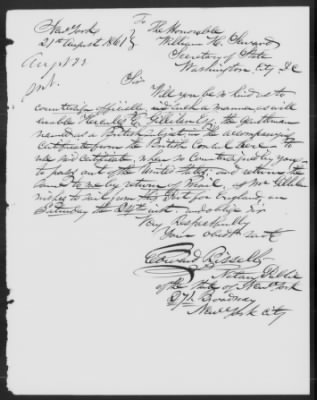 To
New York
The Honorable
21st August 1861
William H. Seward
Secretary of State
Washington City, D.C.
Sir
Will you be so kind as to
countersign officially, and in such a manner as will
enable Gillilan Esq. the gentleman
named as a British subject in the accompanying
certificate from the British Consul here to
use said certificate, when so countersigned by you
to pass out of the United States, and return the
same to me by return of mail, as Mr. Gillilan
wishes to sail from this Port for England, on
Saturday the 24th inst. and oblige Sir
Very Respectfully
Your obedt. servt.
Edward Bissell
Notary Public
of the State of New York
271 Broadway
New York City